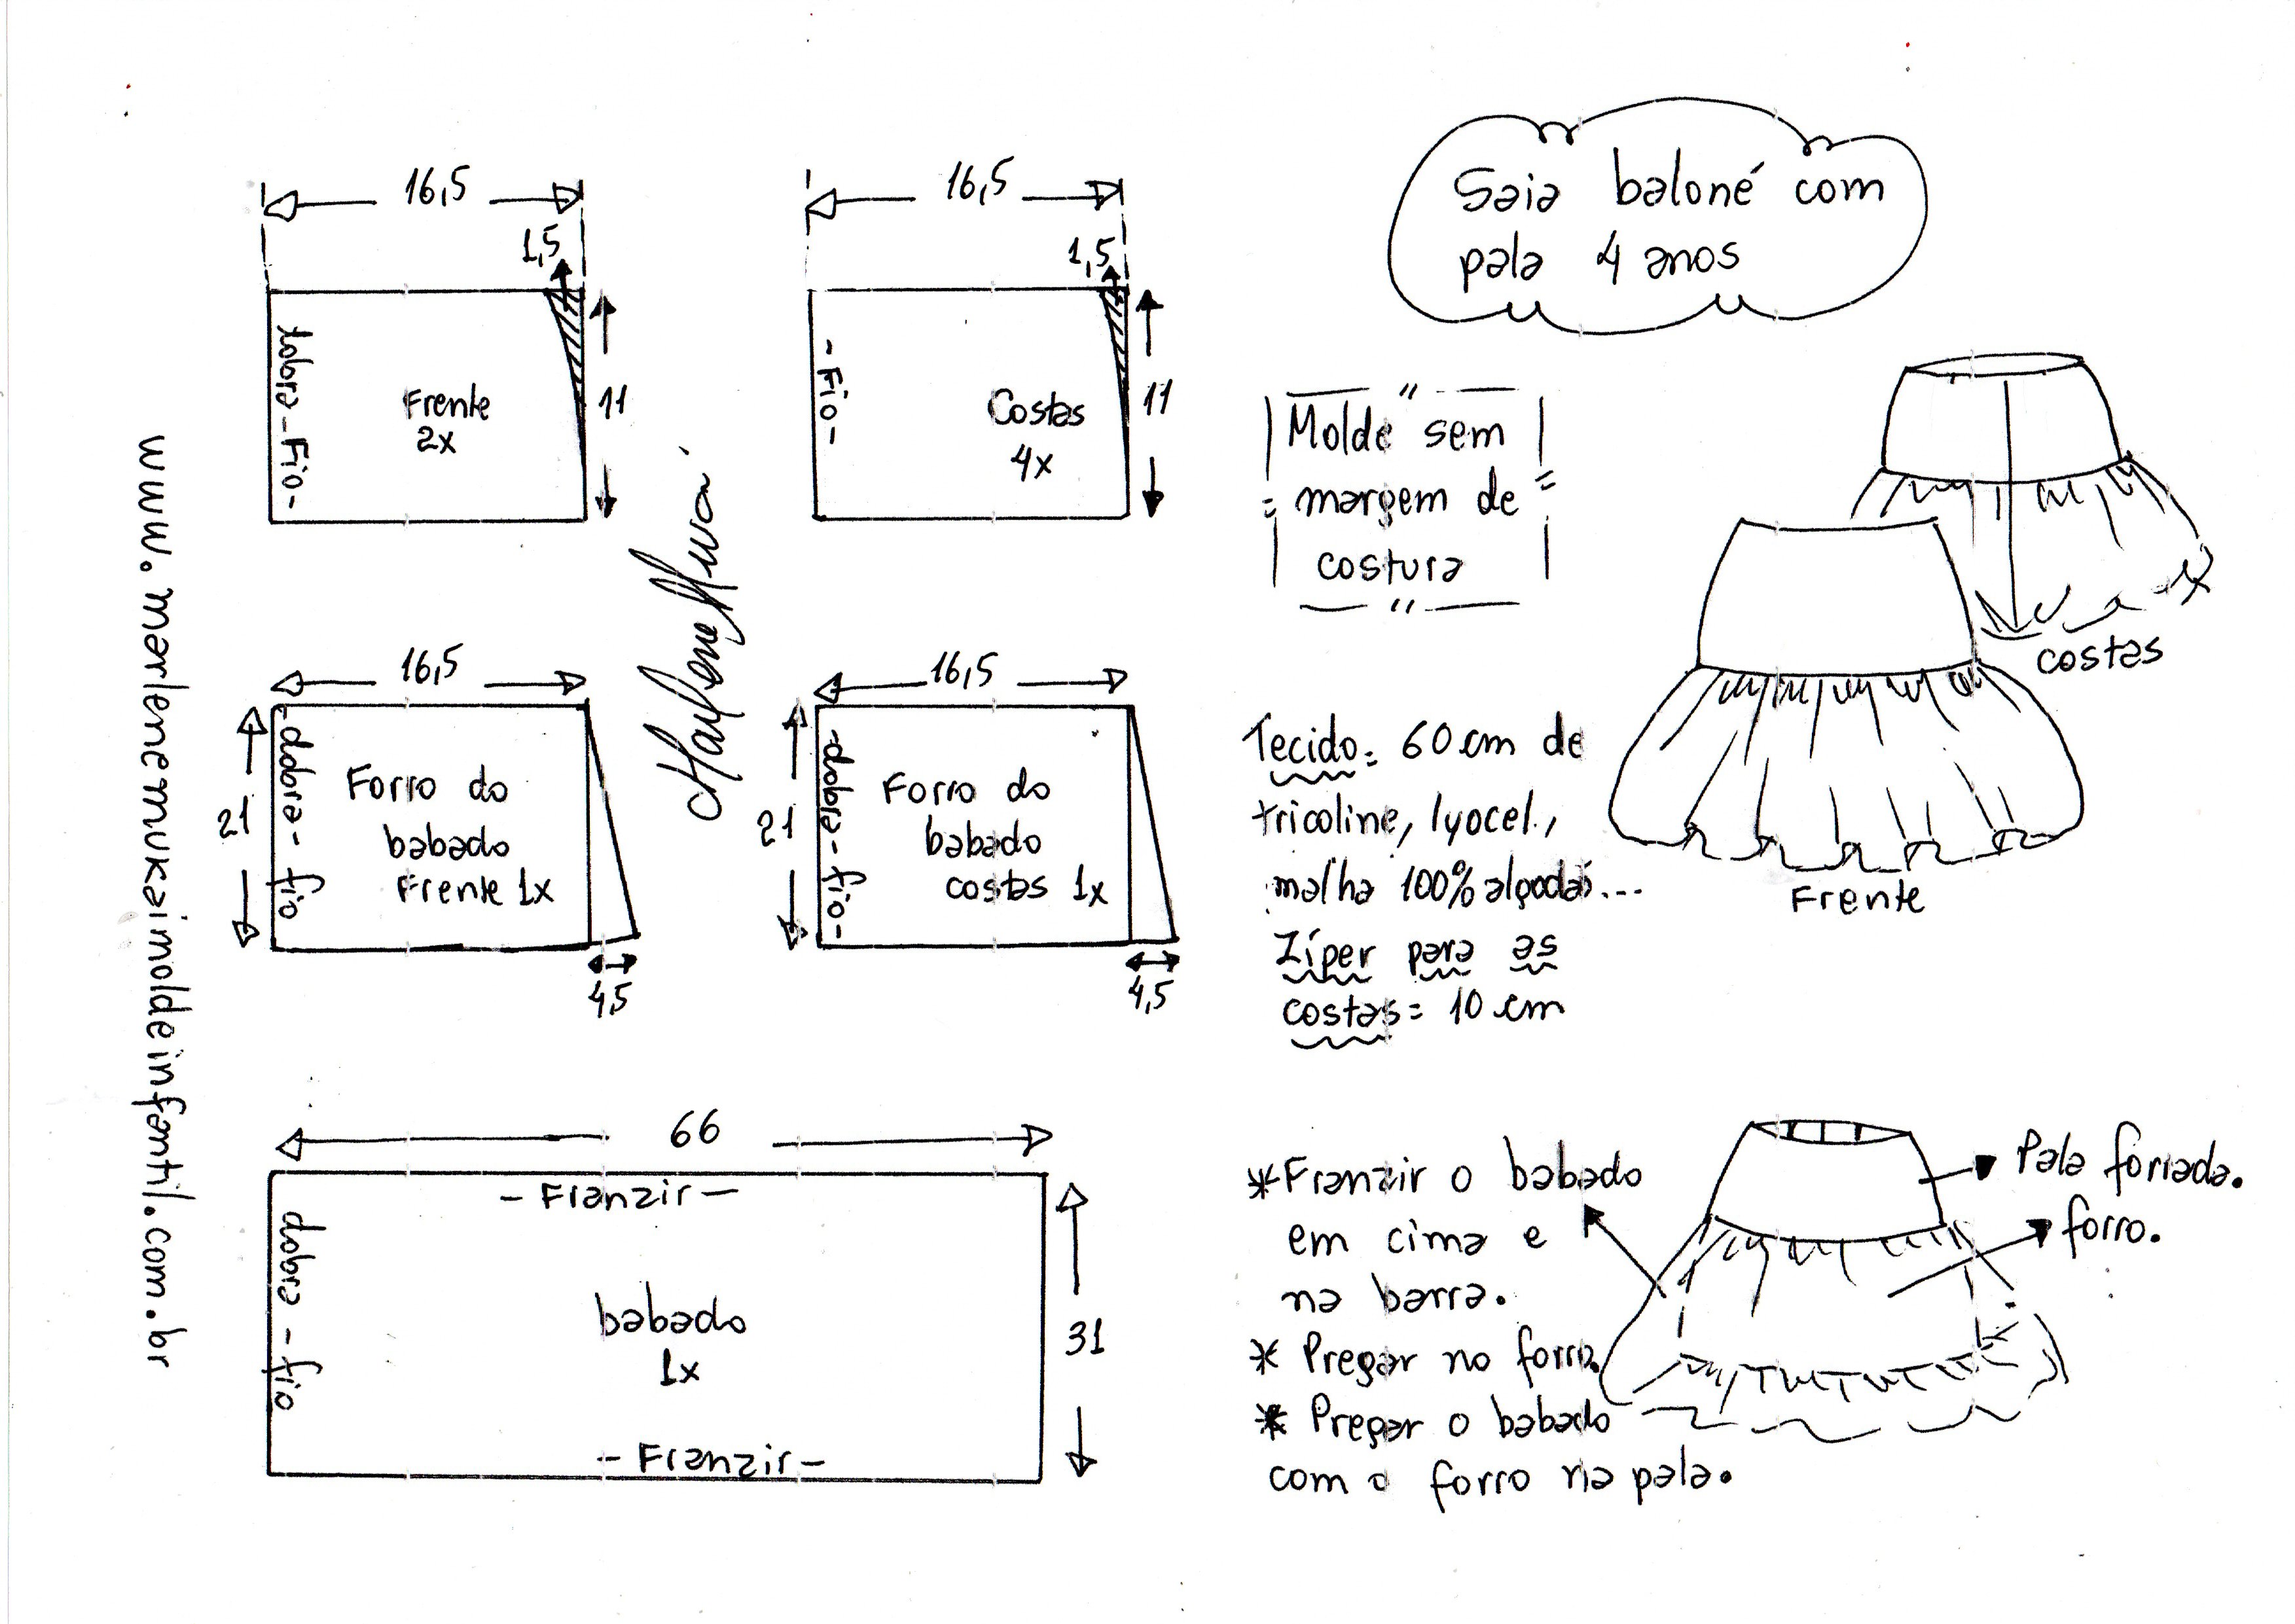 16,5
1,5
dobra - Fio -
Frente
2x
11
16,5
1,5
- Fio -
Costas
4x
11
Saia baloné com
pala 4 anos
Molde sem
margem de
costura
costas
Frente
16,5
21
- dobra - fio
Forro do
babado
Frente 1x
4,5
16,5
21
- dobra - fio -
Forro do
babado
costas 1x
4,5
Marlene Mukai
www.marlenemukaimoldeinfantil.com.br
Tecido: 60 cm de
tricoline, lyocel.,
malha 100% algodão...
Zíper para as
costas = 10 cm
66
- Franzir -
dobra - fio
babado
1x
31
- Franzir -
*Franzir o babado
em cima e
na barra.
* Pregar no forro.
* Pregar o babado
com o forro na pala.
Pala forrada.
forro.